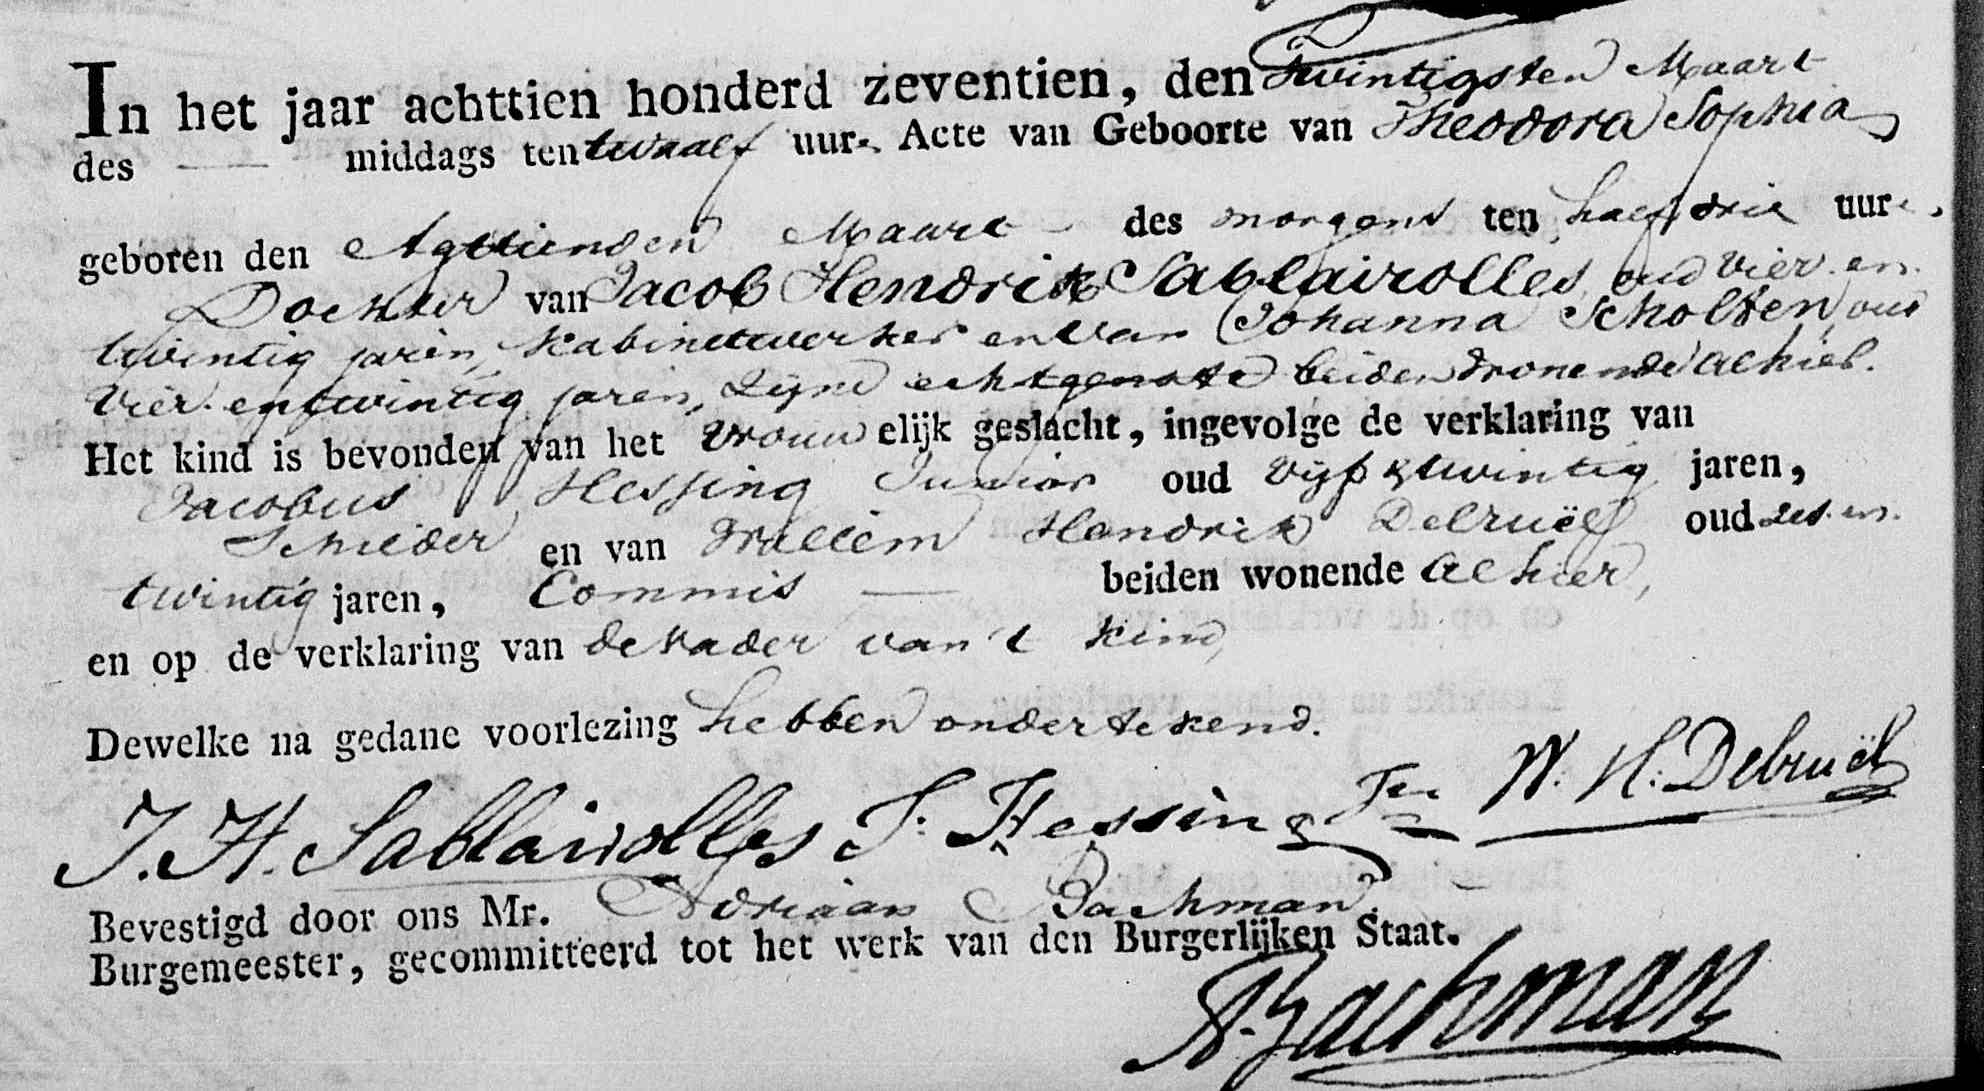 In het jaar achttien honderd zeventien, den Twintigsten Maart
des — middags ten twaalf uure, Acte van Geboorte van Theodora Sophia
geboren den Agttienden Maart des morgens ten half drie uure,
Dochter van Jacob Hendrik Sablairolles, oud vier en
twintig jaren, Kabinetwerker en van Johanna Scholten, oud
vier en twintig jaren, zijne echtgenote beiden wonende alhier.
Het kind is bevonden van het vrouwelijk geslacht, ingevolge de verklaring van
Jacobus Hessing Junior oud vijf & twintig jaren,
Schilder en van Willem Hendrik Debruël oud zes en
twintig jaren, Commis — beiden wonende alhier,
en op de verklaring van de vader van 't kind,
Dewelke na gedane voorlezing hebben ondertekend.
J. H. Sablairolles J. Hessing Jr. W. H. Debruël
Bevestigd door ons Mr. Adriaan Bachman.
Burgemeester, gecommitteerd tot het werk van den Burgerlijken Staat.
A. Bachman